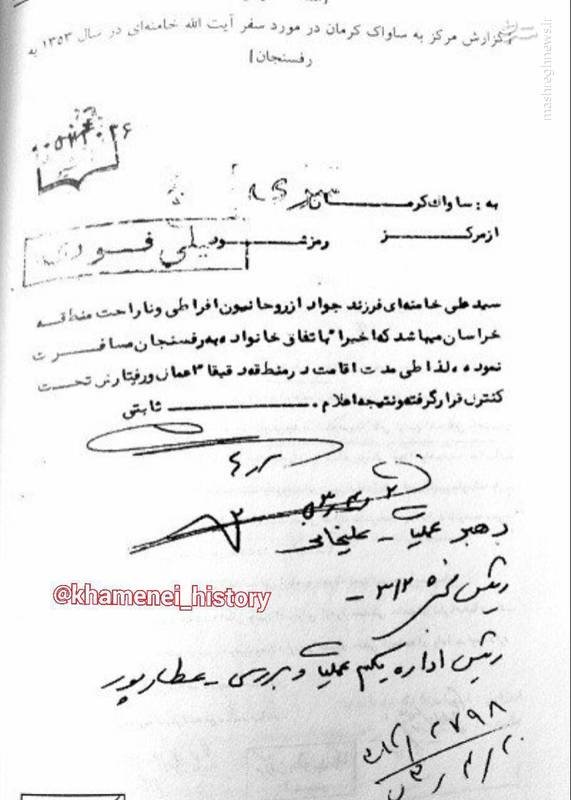 [گزارش مرکز به ساواک کرمان در مورد سفر آیت الله خامنه‌ای در سال ۱۳۵۳ به
رفسنجان]
mashreghnews.ir
به : ساواك کرمــــــان
ازمرکــــــز رمزشــــــود
خیلی فوری
سید علی خامنه‌ای فرزند جواد ازروحانیون افراطی وناراحت منطقه
خراسان میباشد که اخیرا" باتفاق خانواده به رفسنجان مسافرت
نموده ، لذا طی مدت اقامت در منطقه دقیقا" اعمال ورفتارش تحت
کنترل قرارگرفته ونتیجه اعلام . ــــــــ ثابتی
رهبر عملیات - علیخانی
@khamenei_history
رئیس بخش ۳۱۲ -
رئیس اداره یکم عملیات و بررسی - عطارپور